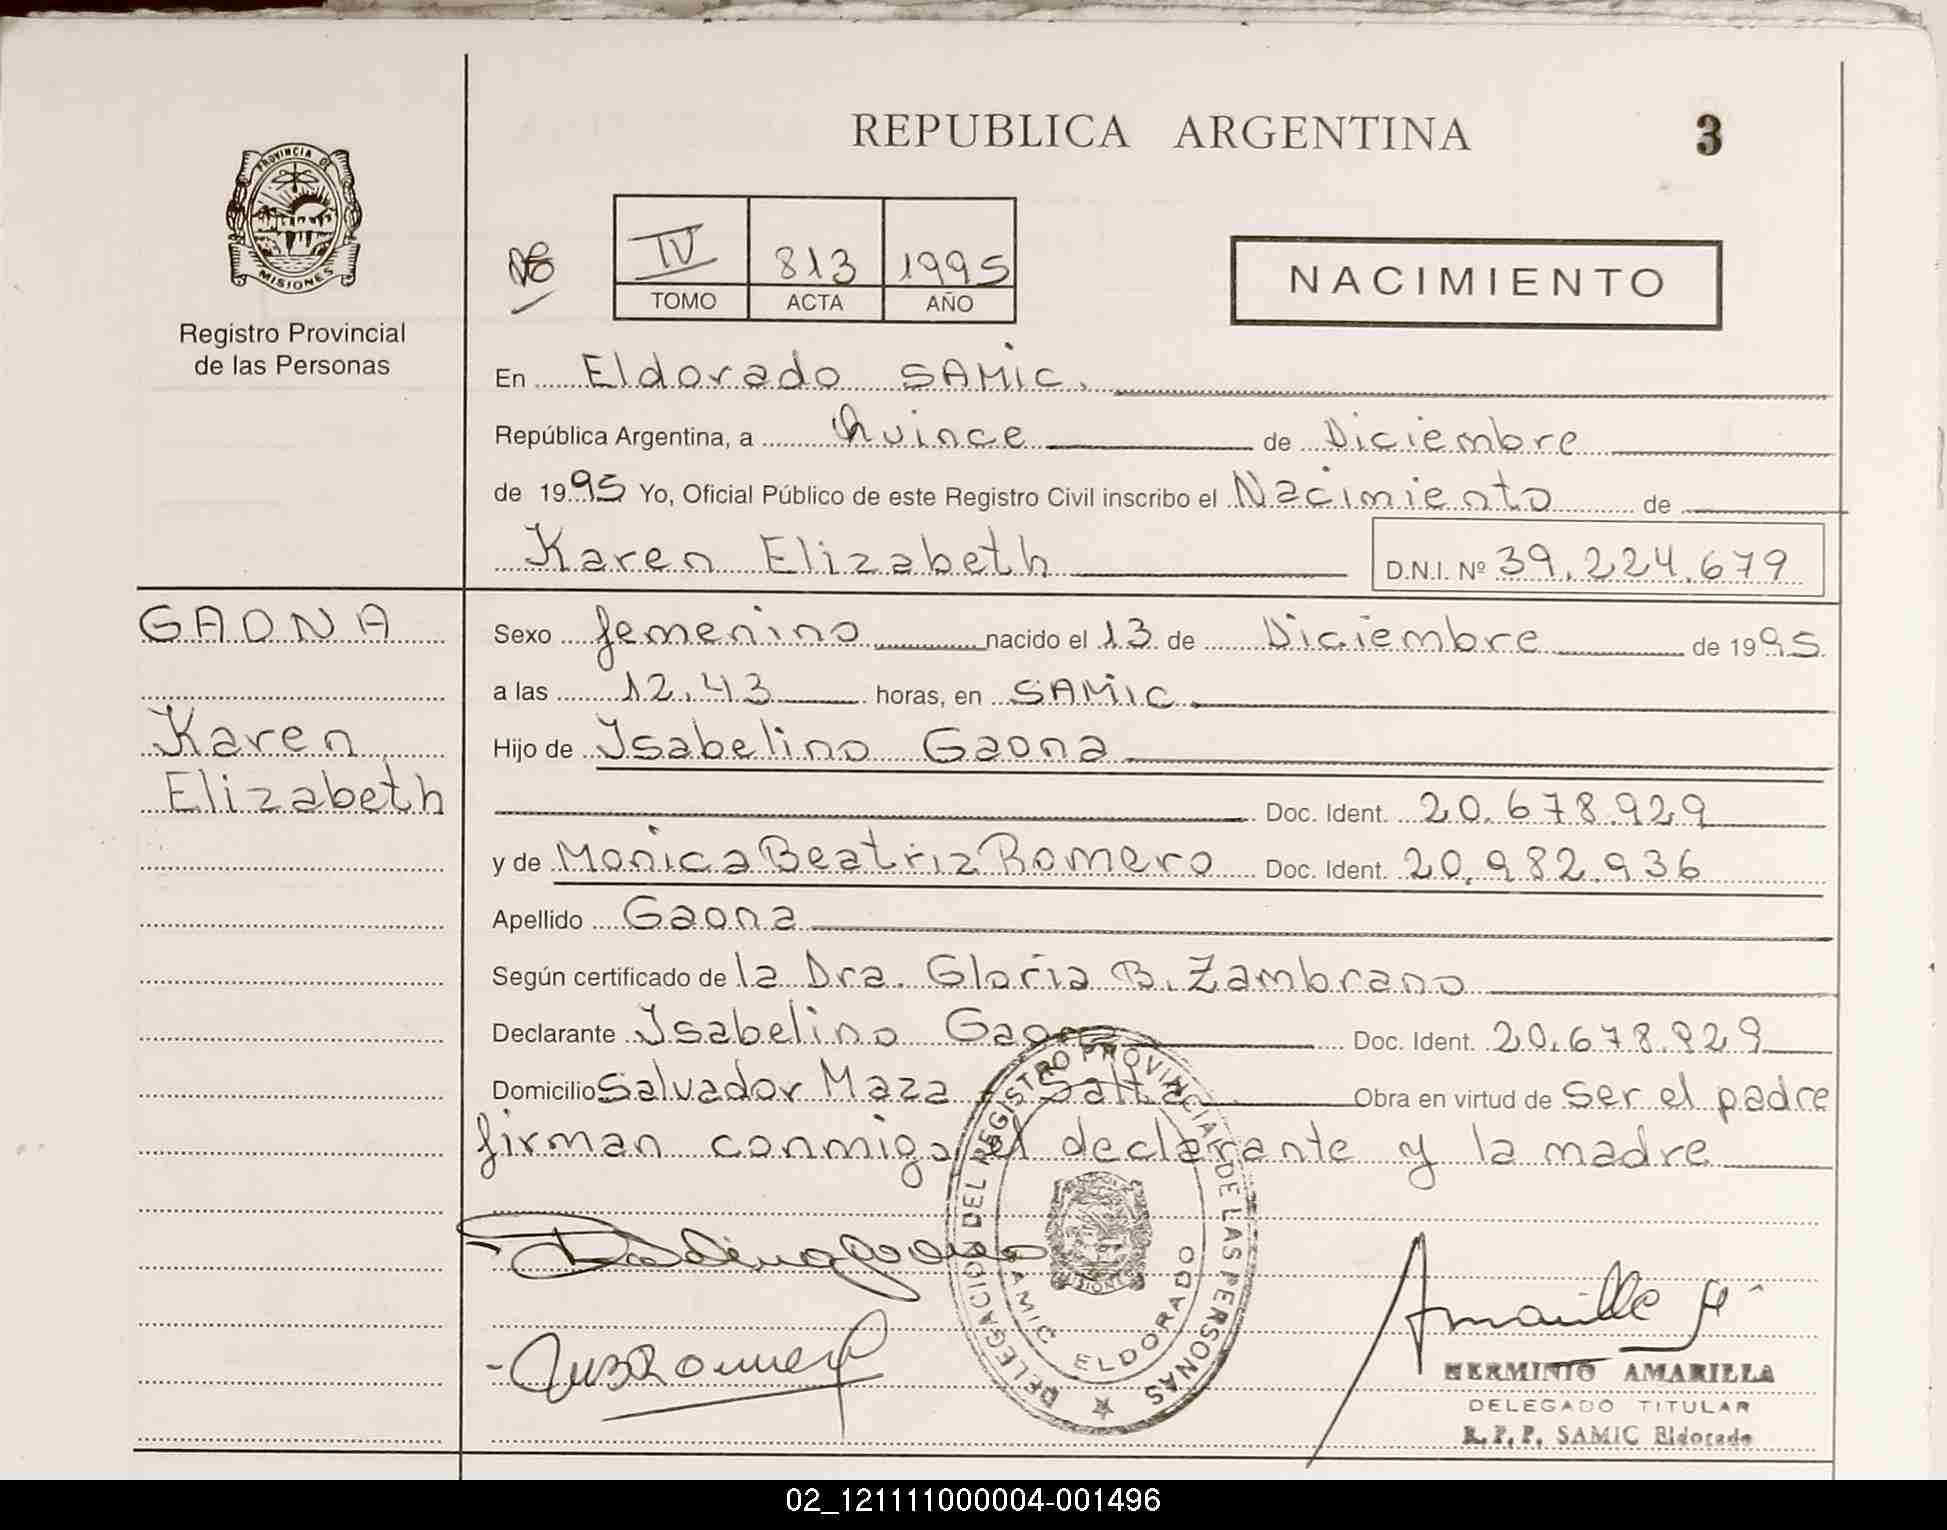 REPUBLICA ARGENTINA
3
PROVINCIA DE
MISIONES
Registro Provincial
de las Personas
IV 813 1995
TOMO ACTA AÑO
NACIMIENTO
En Eldorado SAMIC.
República Argentina, a Quince de Diciembre
de 1995 Yo, Oficial Público de este Registro Civil inscribo el Nacimiento de
Karen Elizabeth D.N.I. Nº 39.224.679
GAONA
Karen
Elizabeth
Sexo femenino nacido el 13 de Diciembre de 1995
a las 12.43 horas, en SAMIC.
Hijo de Isabelino Gaona
Doc. Ident. 20.678.929
y de Monica Beatriz Romero Doc. Ident. 20.982.936
Apellido Gaona
Según certificado de la Dra. Gloria B. Zambrano
Declarante Isabelino Gaona Doc. Ident. 20.678.929
Domicilio Salvador Maza - Salta Obra en virtud de ser el padre
firman conmigo el declarante y la madre
DELEGACION DEL REGISTRO PROVINCIAL DE LAS PERSONAS
SAMIC ELDORADO
MISIONES
HERMINIO AMARILLA
DELEGADO TITULAR
R.P.P. SAMIC Eldorado
02_121111000004-001496